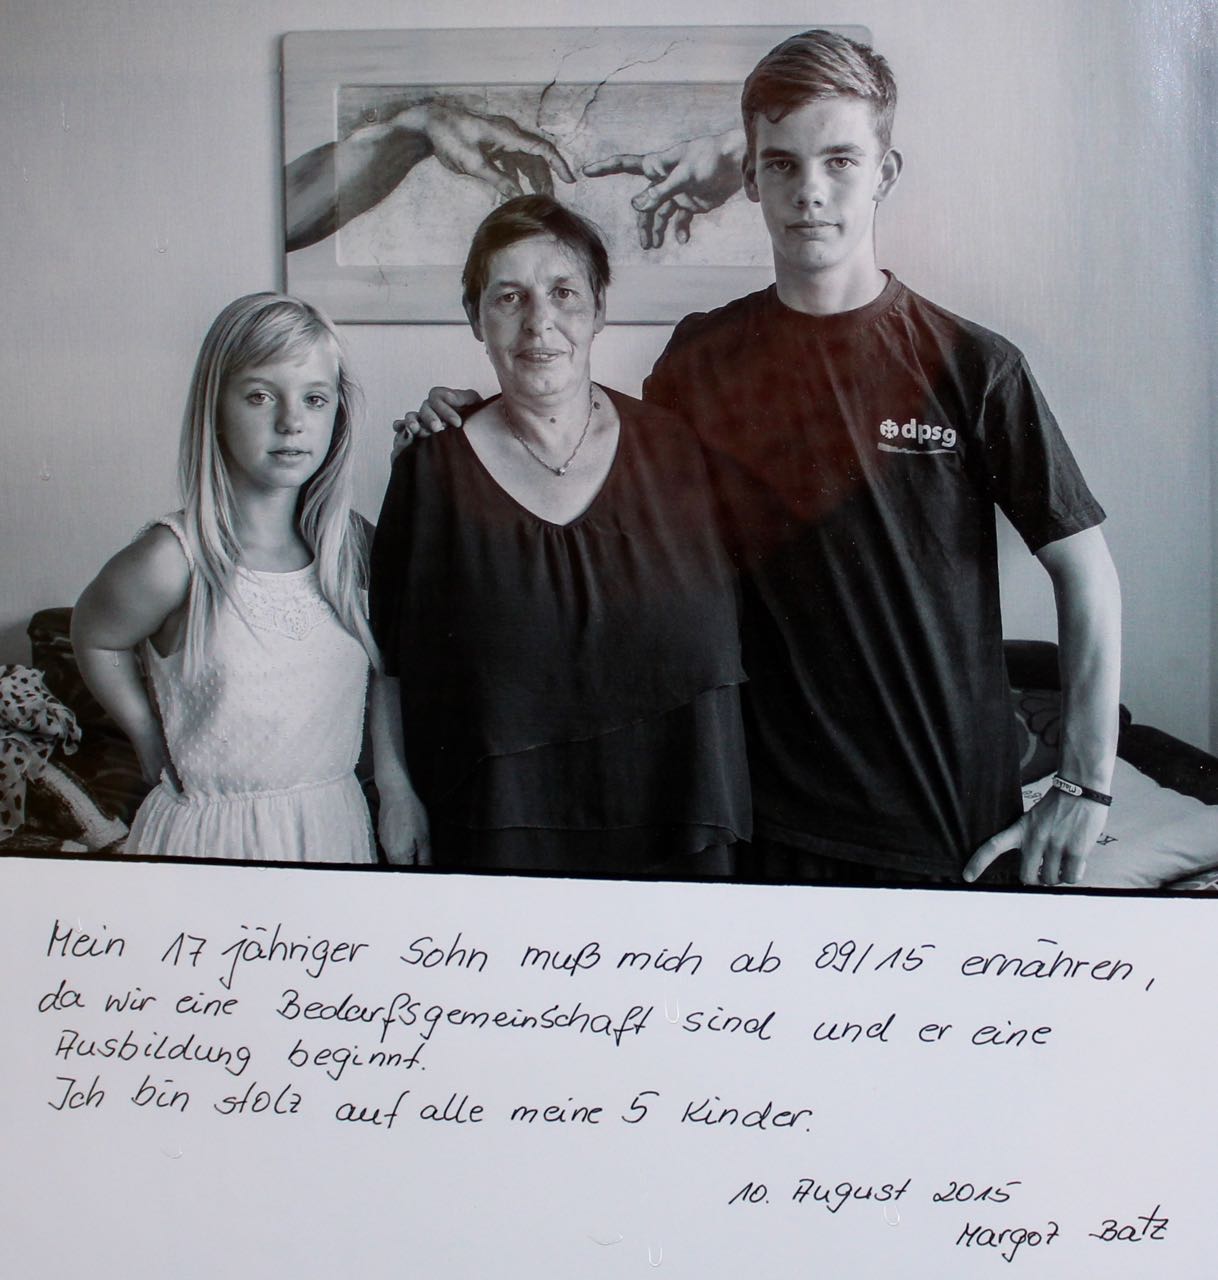 dpsg
Mein 17 jähriger Sohn muß mich ab 09/15 ernähren,
da wir eine Bedarfsgemeinschaft sind und er eine
Ausbildung beginnt.
Ich bin stolz auf alle meine 5 Kinder.
10. August 2015
Margot Batz